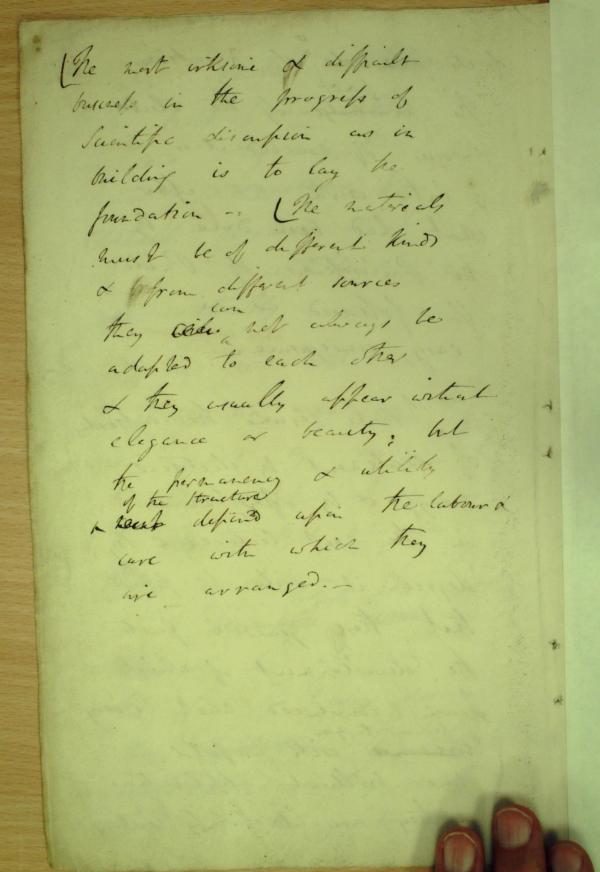 The most irksome & difficult
business in the progress of
Scientific discussion as in
building is to lay the
foundation -- The materials
must be of different kinds
& from different sources
they can not always be
adapted to each other
& they usually appear without
elegance or beauty; but
the permanency & utility
of the structure
depend upon the labour &
care with which they
are arranged. —